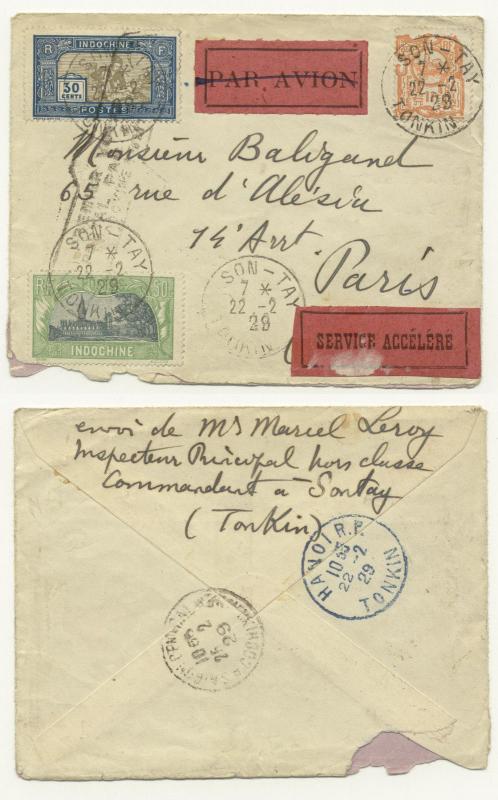 R F
INDOCHINE
30
CENTS
POSTES
PAR AVION
SON-TAY
7 *
22 -2
29
TONKIN
Monsieur Baligand
65 rue d'Alésia
14e Arrt
Paris
SON-TAY
7 *
22 -2
29
TONKIN
SON-TAY
7 *
22 -2
29
TONKIN
INDOCHINE
SERVICE ACCÉLÉRÉ
envoi de Mr Marcel Leroy
Inspecteur Principal hors classe
Commandant à Sontay
(Tonkin)
HANOI R.P.
22 -2
29
TONKIN
25
2
29